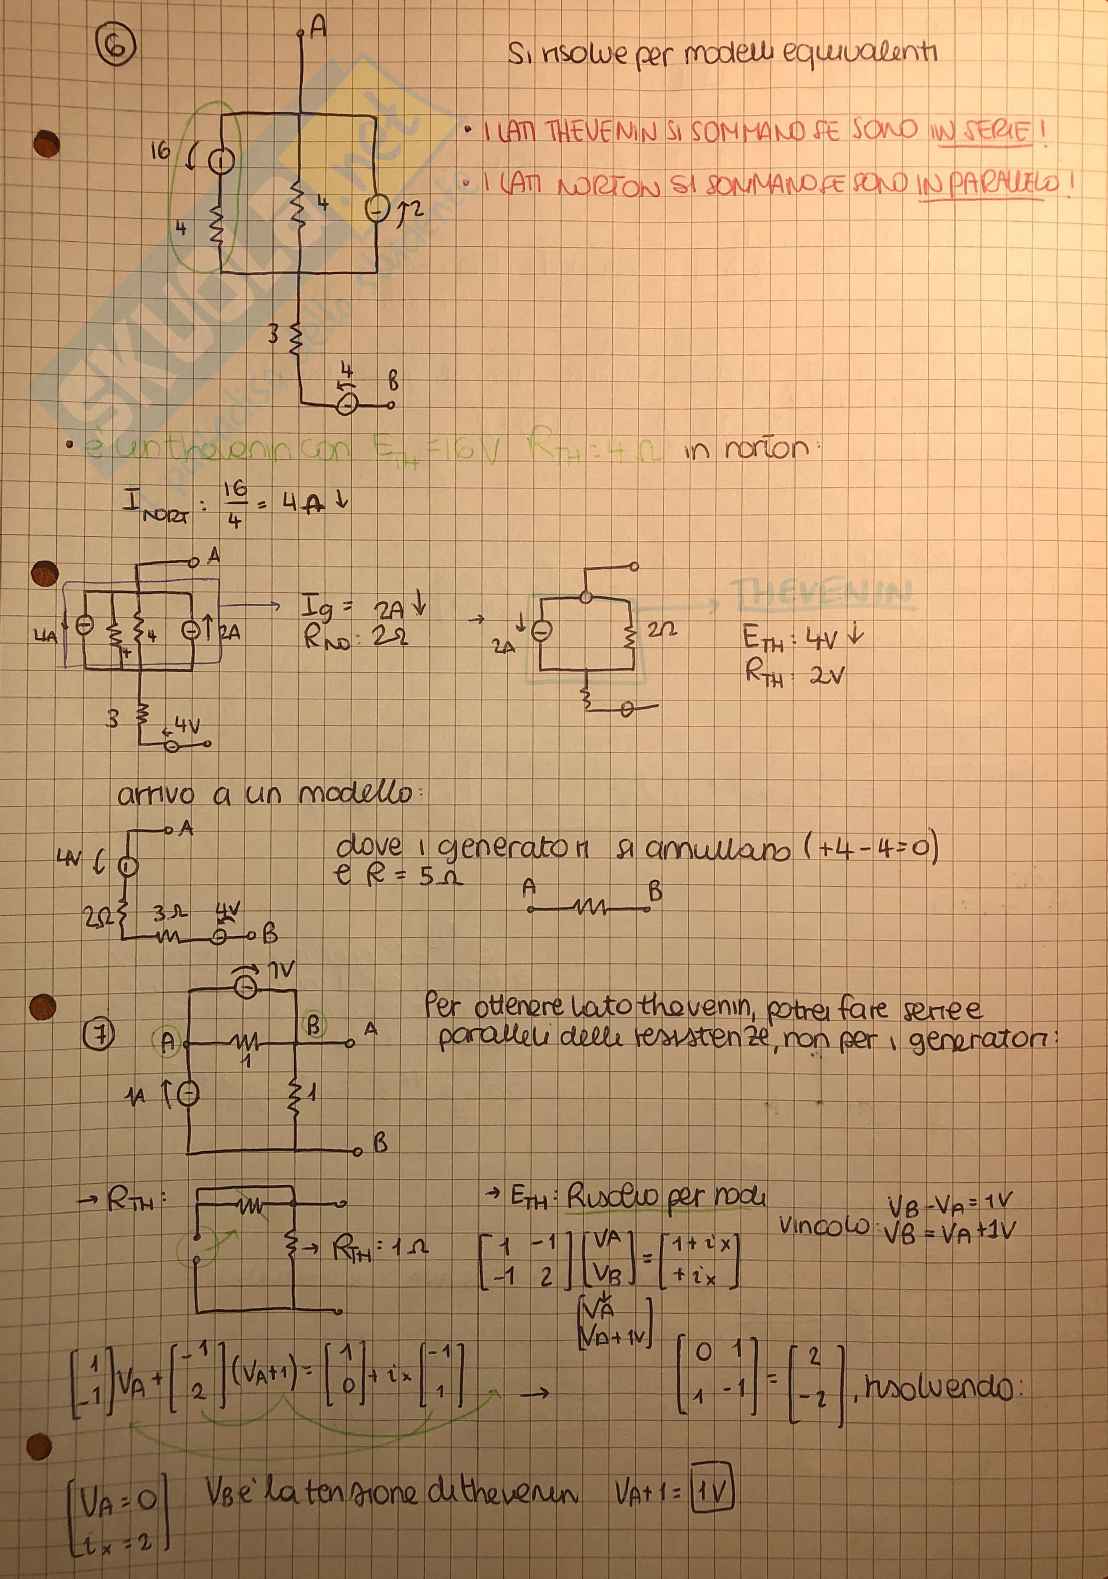 6
A
Si risolve per modelli equivalenti
• I LATI THEVENIN SI SOMMANO SE SONO IN SERIE!
• I LATI NORTON SI SOMMANO SE SONO IN PARALLELO!
16
4
4
↑2
3
4
B
SKUOLA.net
• è un thevenin con E_TH = 16V R_TH = 4 Ω in norton:
I_NORT : 16/4 = 4A ↓
A
4A
4
4
↑2A
3
4V
→ Ig = 2A ↓
R_NO: 2Ω
→
2A
2Ω
→ THEVENIN
E_TH: 4V ↓
R_TH: 2V
arrivo a un modello:
A
4V
2Ω
3Ω
4V
B
dove i generatori si annullano (+4-4=0)
e R = 5Ω
A
B
7
1V
A
B
A
1
1A ↑
1
B
Per ottenere lato thevenin, potrei fare serie e
paralleli delle resistenze, non per i generatori:
→ R_TH:
→ R_TH: 1Ω
→ E_TH: Risolvo per nodi
vincolo: VB - VA = 1V
VB = VA + 1V
[1 -1; -1 2] [VA; VB] = [1 + ix; + ix]
[VA; VA + 1V]
[1; -1] VA + [-1; 2] (VA+1) = [1; 0] + ix [-1; 1] →
[0 1; 1 -1] = [2; -2], risolvendo:
[VA = 0; ix = 2]
VB è la tensione di thevenin VA+1 = 1V